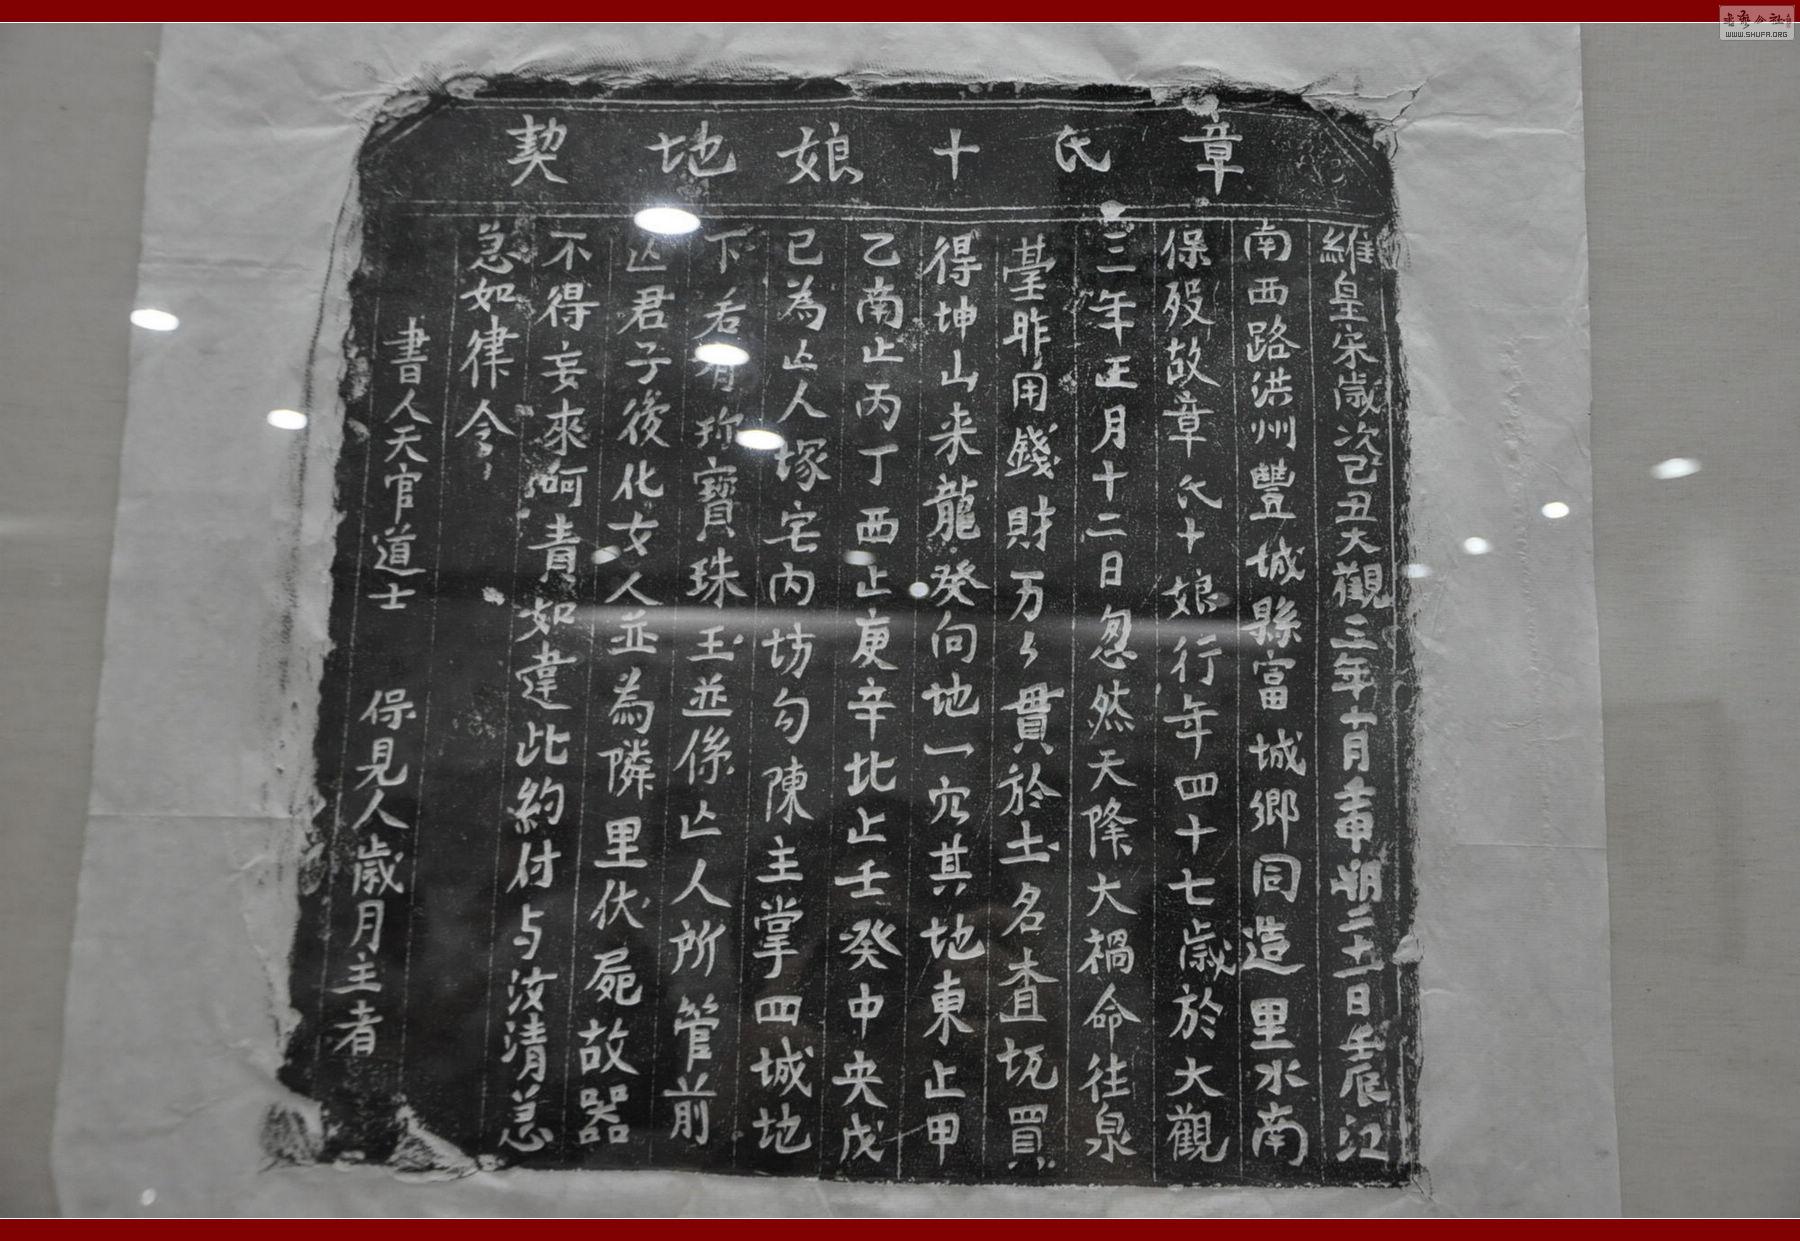 章氏十娘地契
維皇宋歲次己丑大觀三年十月壬申朔二十一日壬辰江
南西路洪州豐城縣富城鄉同造里水南
保歿故章氏十娘行年四十七歲於大觀
三年正月十二日忽然天降大禍命往泉
臺昨用錢財万々貫於土名查坑買
得坤山来龍癸向地一穴其地東止甲
乙南止丙丁西止庚辛北止壬癸中央戊
已為亾人塚宅内坊勾陳主掌四城地
下若有珎寶珠玉並係亾人所管前
亾君子後化女人並為隣里伏屍故器
不得妄來呵責如違此約付与汝清急
急如律令
書人天官道士 保見人歲月主者
WWW.SHUFA.ORG